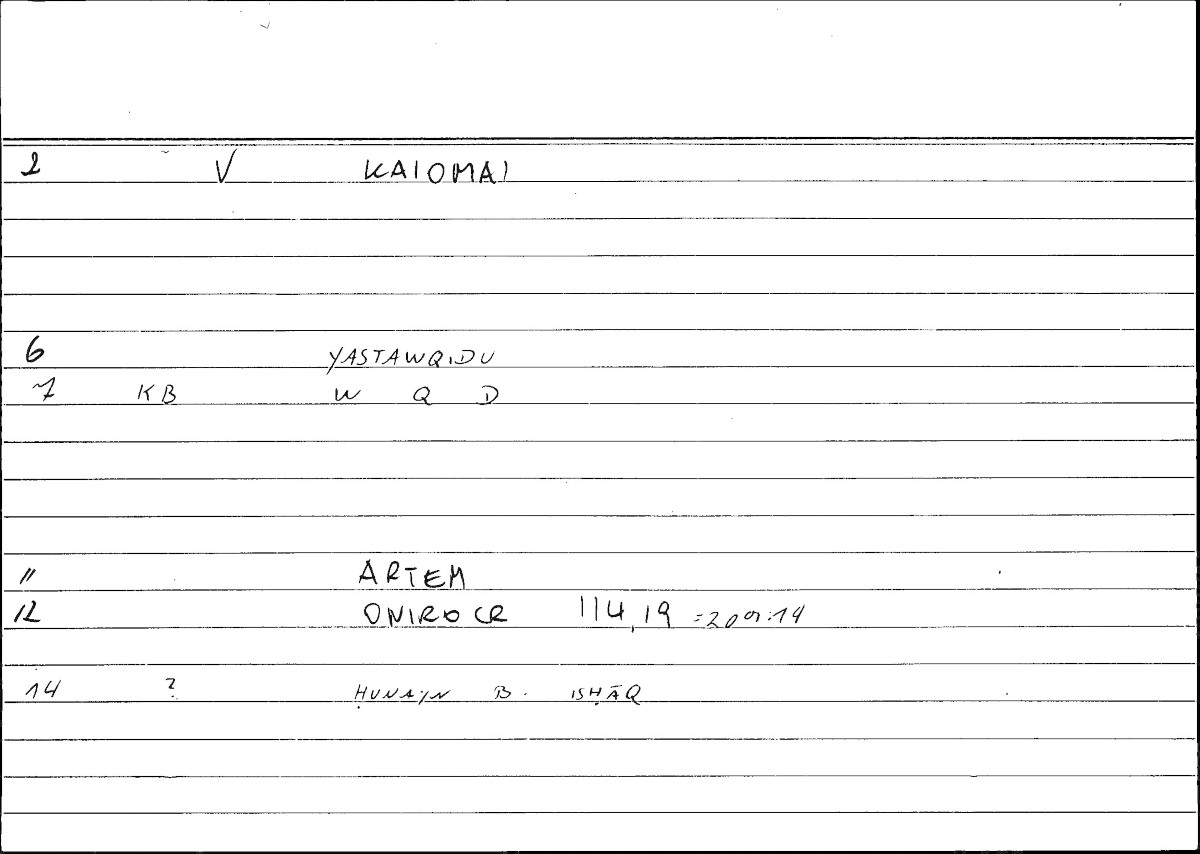 2 V KAIOMAI
6 YASTAWQIDU
7 KB W Q D
11 ARTEM
12 ONIROCR 114,19 =209:14
14 ? ḤUNAYN B. ISḤĀQ